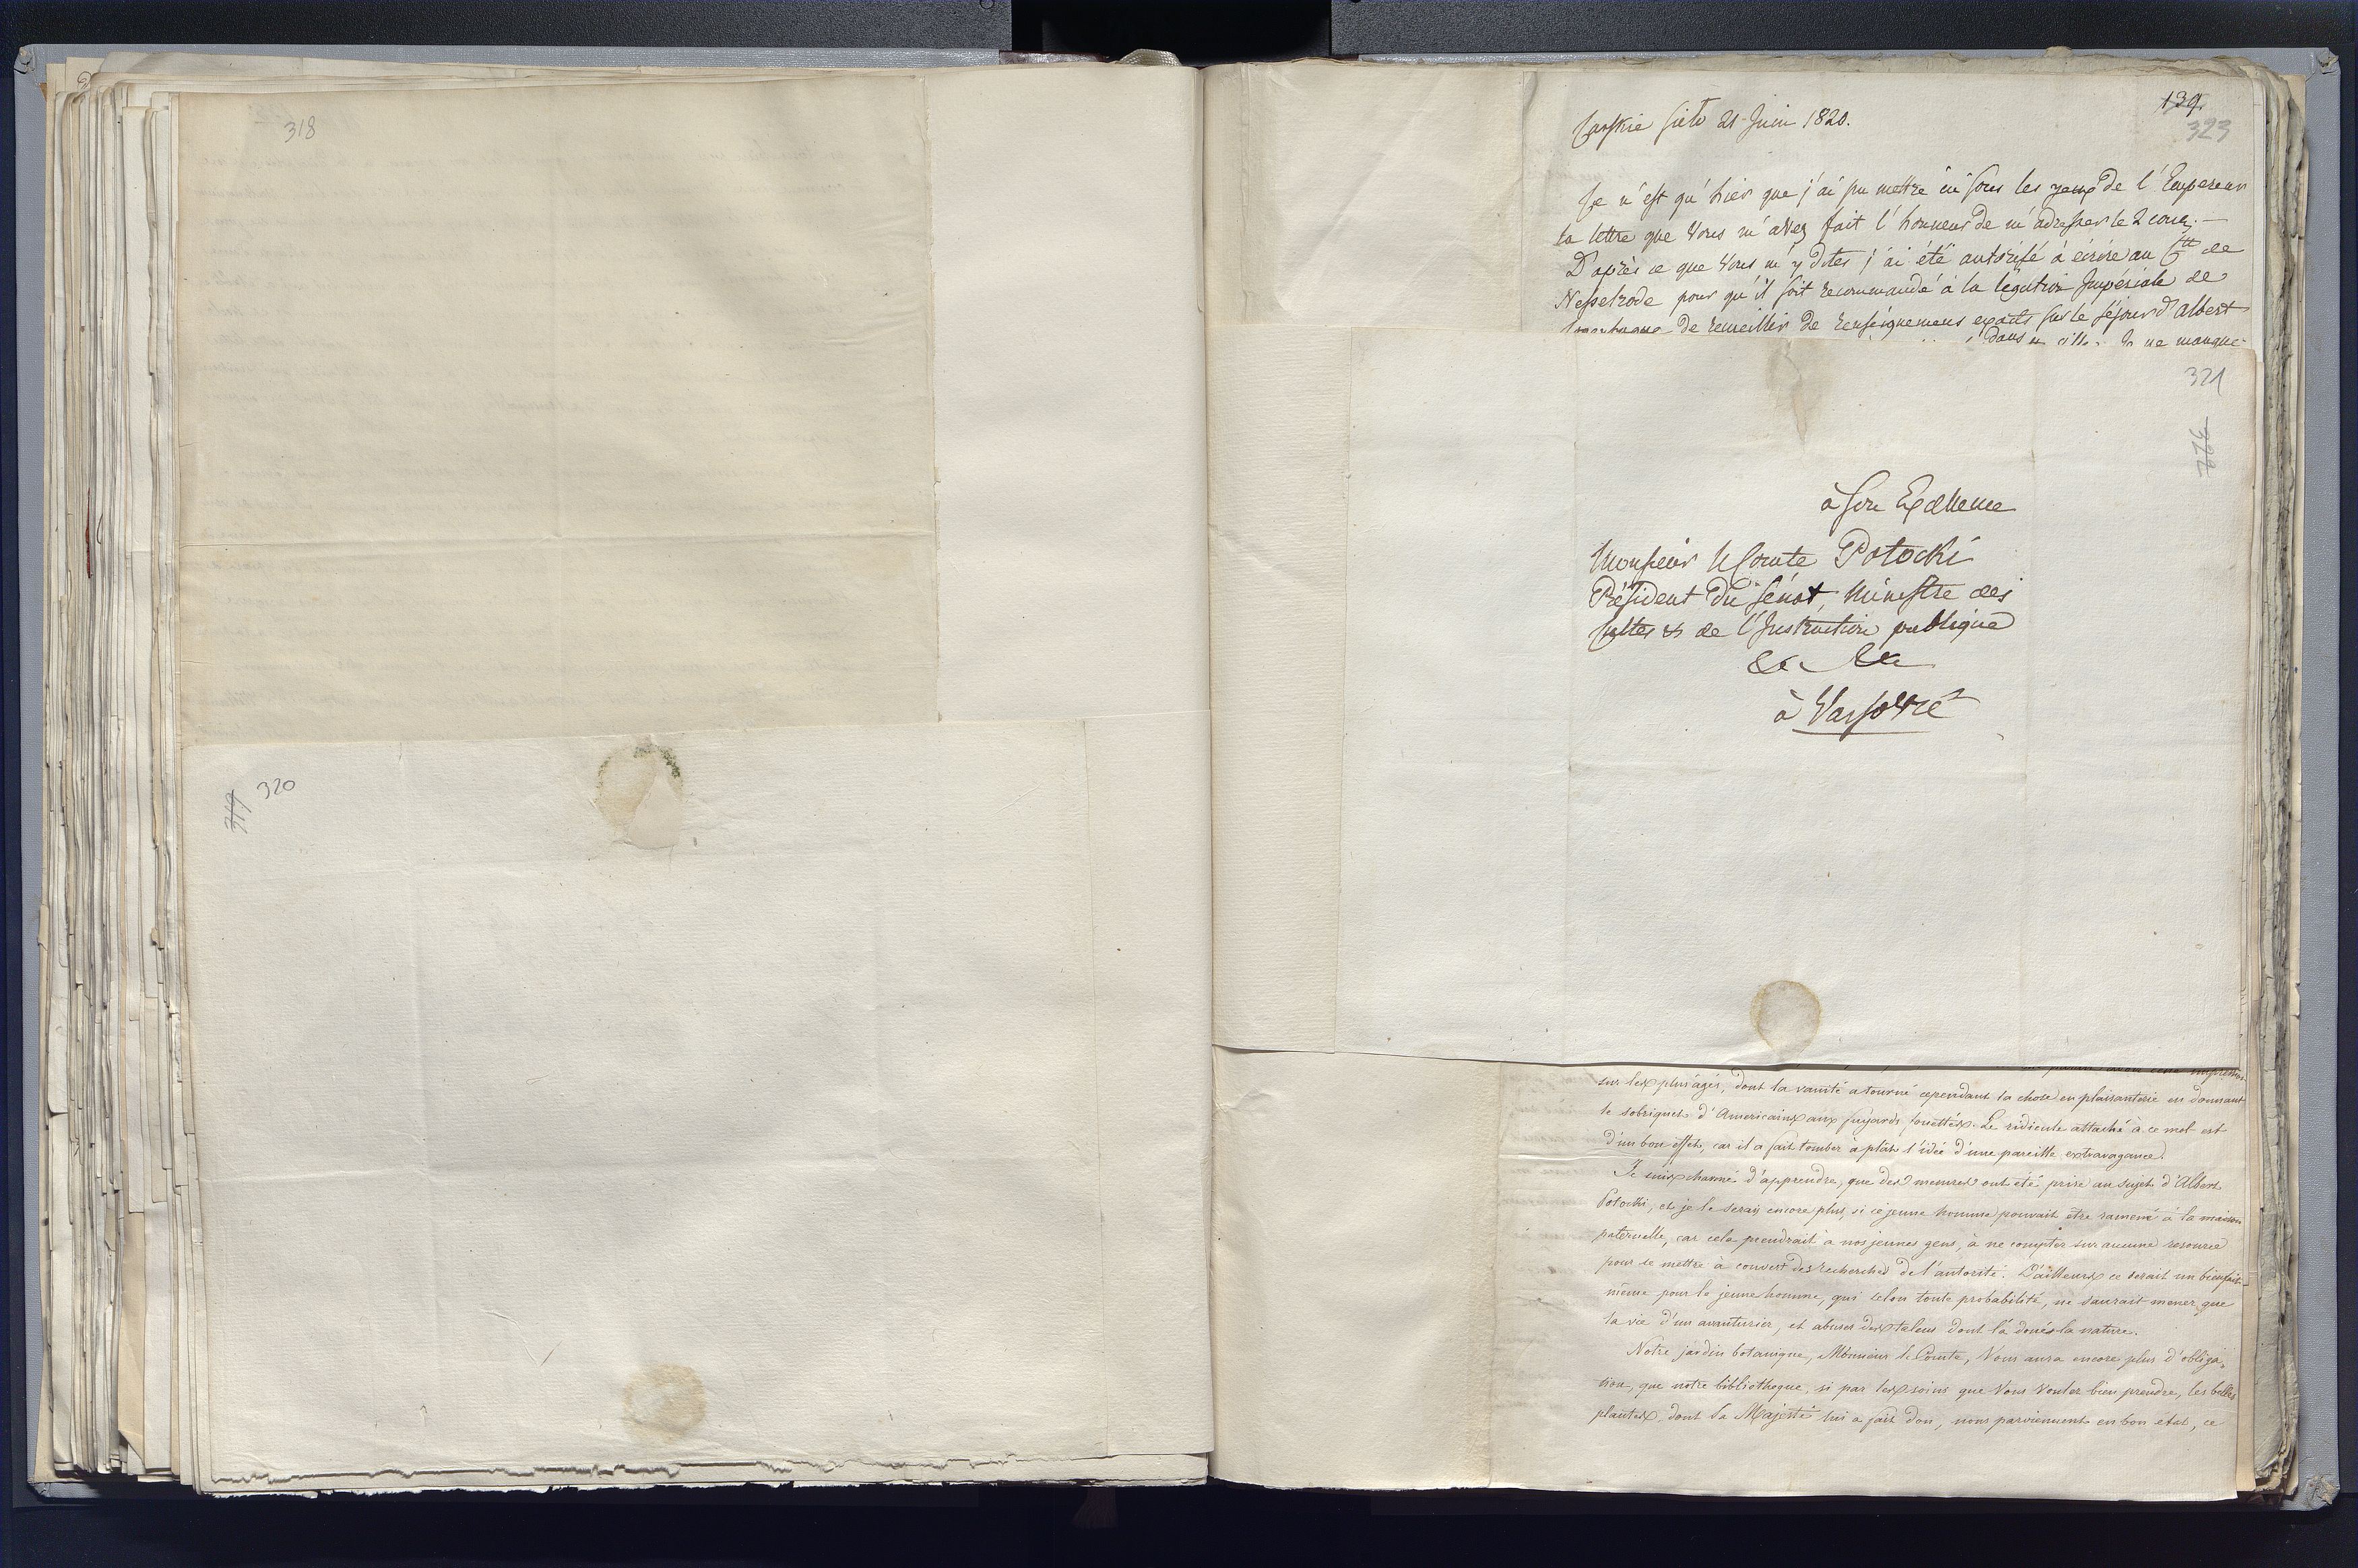 318
319 320
139.
323
Carskie sieło 21 Juin 1820.
Ce n'est qu'hier que j'ai pu mettre sous les yeux de l'Empereur
la lettre que Vous m'avez fait l'honneur de m'adresser le 2 cour. —
D'après ce que Vous m'y dites j'ai été autorisé à écrire au Cte de
Nesselrode pour qu'il soit recommandé à la légation Impériale de
de recueillir de renseignemens exacts sur le séjour d'Albert
dans ville. Je ne manque
321
322
à Son Excellence
Monsieur le Comte Potocki
Président du Sénat, Ministre des
Cultes & de l'Instruction publique
&c &c
à Varsovie
impression
sur les plus âgés, dont la vanité a tourné cependant la chose en plaisanterie en donnant
le sobriquet d'Americains aux fuyards fouettés. Le ridicule attaché à ce mot est
d'un bon effet, car il a fait tomber à plât l'idée d'une pareille extravagance.
Je suis charmé d'apprendre, que des mesures ont été prise au sujet d'Albert
Potocki, et je le serais encore plus, si ce jeune homme pouvait être ramené à la maison
paternelle, car cela prendrait à nos jeunes gens, à ne compter sur aucune resource
pour se mettre à couvert des recherches de l'autorité. D'ailleurs ce serait un bienfait
même pour le jeune homme, qui selon toute probabilité, ne saurait mener que
la vie d'un avanturier, et abuser des talens dont l'a doués la nature.
Notre jardin botanique, Monsieur le Comte, Vous aura encore plus d'obliga-
tion, que notre bibliotheque, si par les soins que Vous voulez bien prendre, les belles
plantes, dont Sa Majesté lui a fait don, nous parviennent en bon état, ce